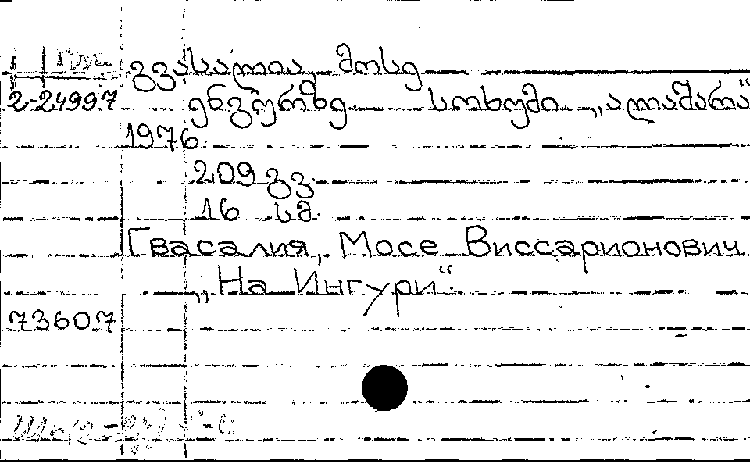 გვასალია, მოსე
2-24997 ენგურზე სოხუმი „ალაშარა“
1976
209 გვ.
16 სმ.
Гвасалия, Мосе Виссарионович
„На Ингури“.
73607